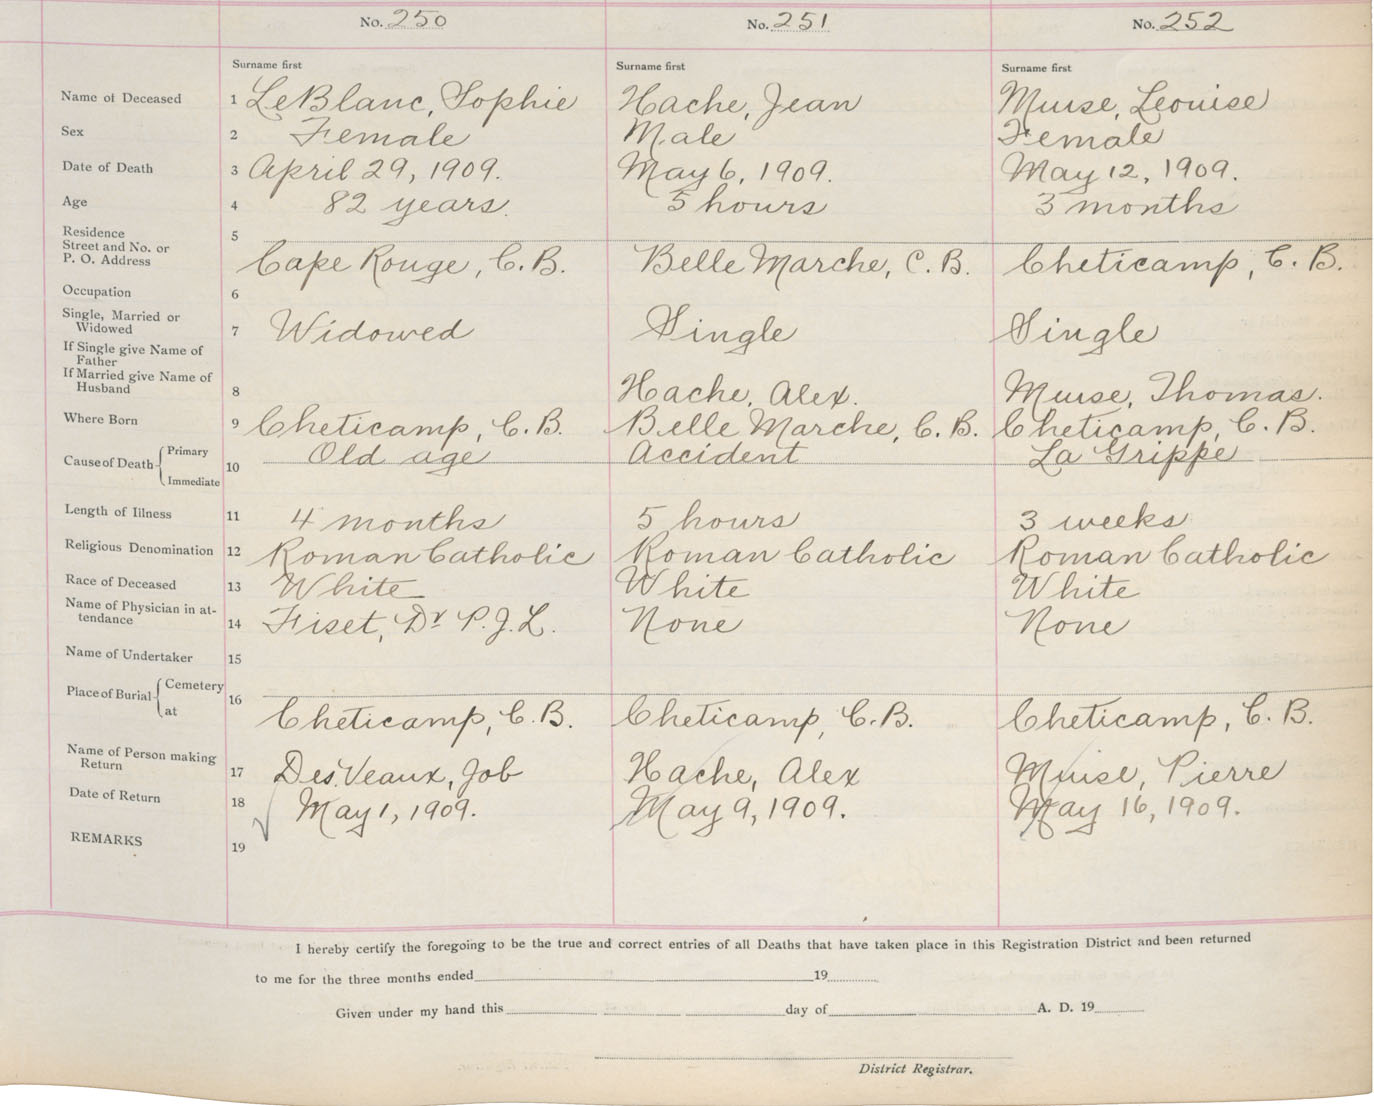 No. 250 No. 251 No. 252
Surname first Surname first Surname first
Name of Deceased 1 LeBlanc, Sophie Hache, Jean Muise, Leouise
Sex 2 Female Male Female
Date of Death 3 April 29, 1909. May 6, 1909. May 12, 1909.
Age 4 82 years. 5 hours 3 months
Residence
Street and No. or
P. O. Address
5 Cape Rouge, C.B. Belle Marche, C.B. Cheticamp, C.B.
Occupation 6
Single, Married or
Widowed
7 Widowed Single Single
If Single give Name of
Father
If Married give Name of
Husband
8 Hache, Alex. Muise, Thomas.
Where Born 9 Cheticamp, C.B. Belle Marche, C.B. Cheticamp, C.B.
Cause of Death Primary
Immediate
10 Old age Accident La Grippe
Length of Illness 11 4 months 5 hours 3 weeks
Religious Denomination 12 Roman Catholic Roman Catholic Roman Catholic
Race of Deceased 13 White White White
Name of Physician in at-
tendance
14 Fiset, Dr P.J.L. None None
Name of Undertaker 15
Place of Burial Cemetery
at
16 Cheticamp, C.B. Cheticamp, C.B. Cheticamp, C.B.
Name of Person making
Return
17 DesVeaux, Job Hache, Alex Muise, Pierre
Date of Return 18 May 1, 1909. May 9, 1909. May 16, 1909.
REMARKS 19
I hereby certify the foregoing to be the true and correct entries of all Deaths that have taken place in this Registration District and been returned
to me for the three months ended 19
Given under my hand this day of A. D. 19
District Registrar.